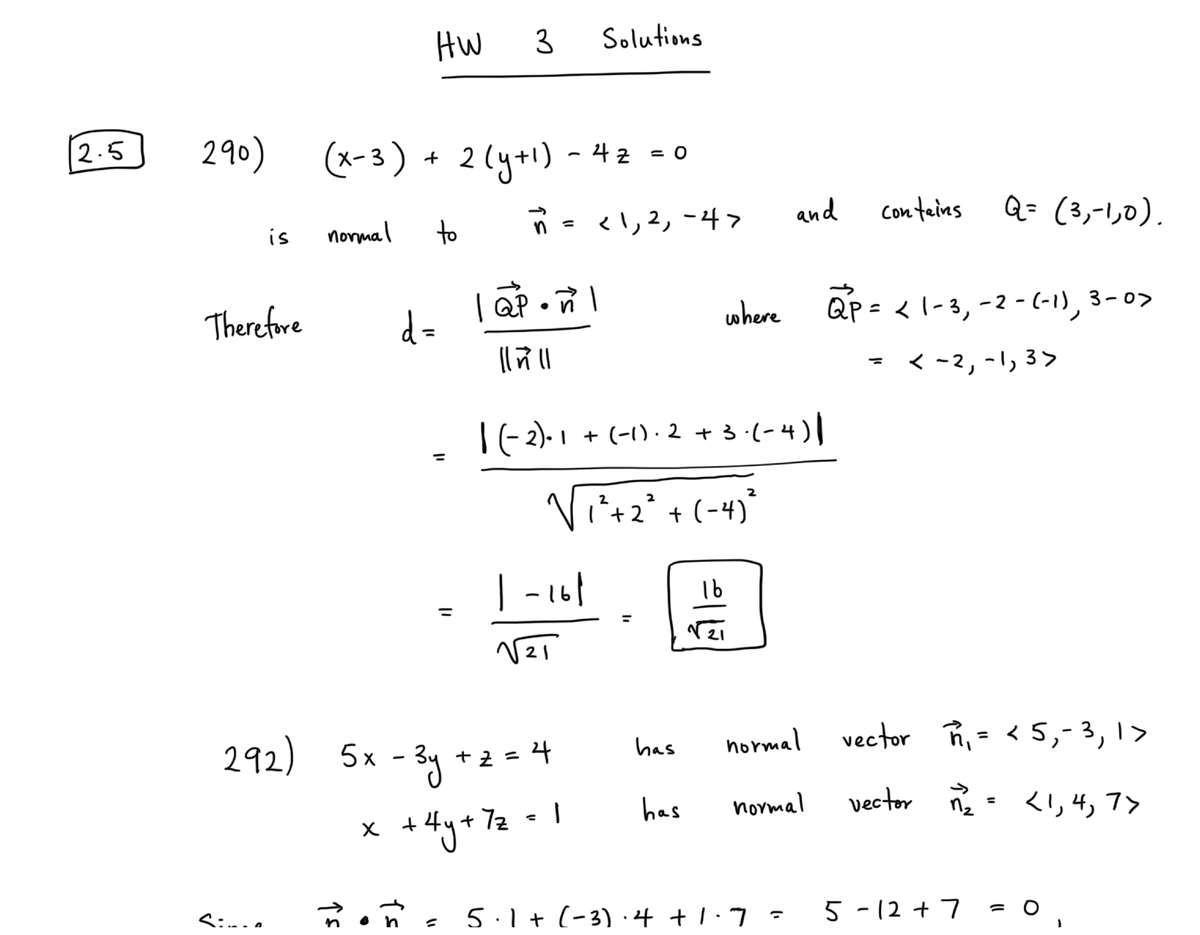 HW 3 Solutions
2.5 290) (x-3) + 2(y+1) - 4z = 0
is normal to n⃗ = <1, 2, -4> and contains Q = (3,-1,0).
Therefore d = |QP⃗ • n⃗| / ||n⃗|| where QP⃗ = <1-3, -2-(-1), 3-0>
= <-2, -1, 3>
= |(-2)·1 + (-1)·2 + 3·(-4)| / √(1² + 2² + (-4)²)
= |-16| / √21 = 16 / √21
292) 5x - 3y + z = 4 has normal vector n⃗₁ = <5, -3, 1>
x + 4y + 7z = 1 has normal vector n⃗₂ = <1, 4, 7>
Since n⃗ • n⃗ = 5·1 + (-3)·4 + 1·7 = 5 - 12 + 7 = 0,